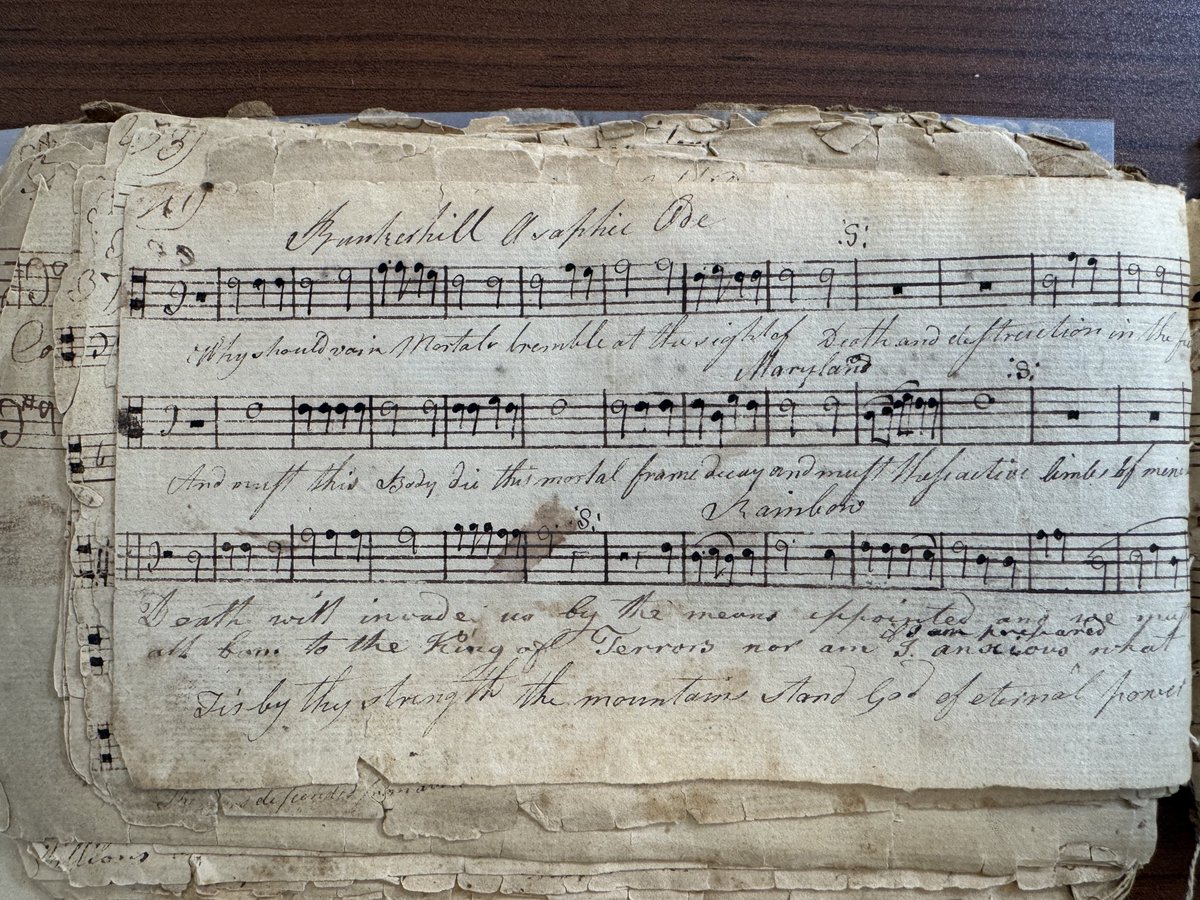 33)
41)
Bunkerhill A saphic Ode
:S:
Why should vain Mortals tremble at the sight of Death and destruction in the
Maryland
:S:
And must this Body die this mortal frame decay and must these active limbs of mine
Rainbow
:S:
Death will invade us by the means appointed and we must
I am prepared
all bow to the King of Terrors nor am I anxious what
Tis by thy strength the mountains stand God of eternal power